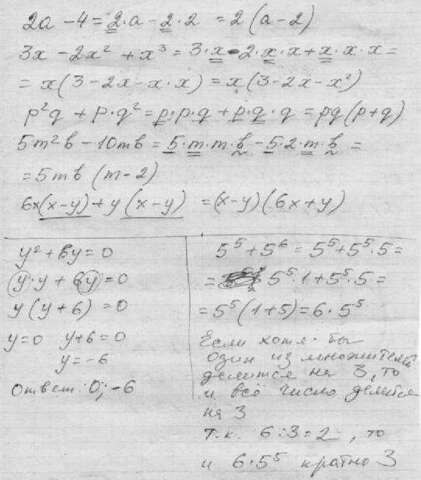 2a - 4 = 2·a - 2·2 = 2(a-2)
3x - 2x² + x³ = 3·x - 2·x·x + x·x·x =
= x(3 - 2x - x·x) = x(3-2x-x²)
p²q + p·q² = p·p·q + p·q·q = pq(p+q)
5m²b - 10mb = 5·m·m·b - 5·2·m·b =
= 5mb(m-2)
6x(x-y) + y(x-y) = (x-y)(6x+y)
y² + 6y = 0
(y·y + 6y) = 0
y(y+6) = 0
y=0 y+6=0
y=-6
Ответ: 0; -6
5⁵ + 5⁶ = 5⁵ + 5⁵·5 =
= 5⁵·1 + 5⁵·5 =
= 5⁵(1+5) = 6·5⁵
Если хотя-бы
один из множителей
делится на 3, то
и всё число делится
на 3
т.к. 6:3=2, то
и 6·5⁵ кратно 3